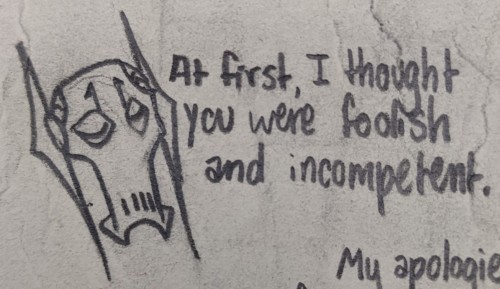 At first, I thought
you were foolish
and incompetent.
My apologie